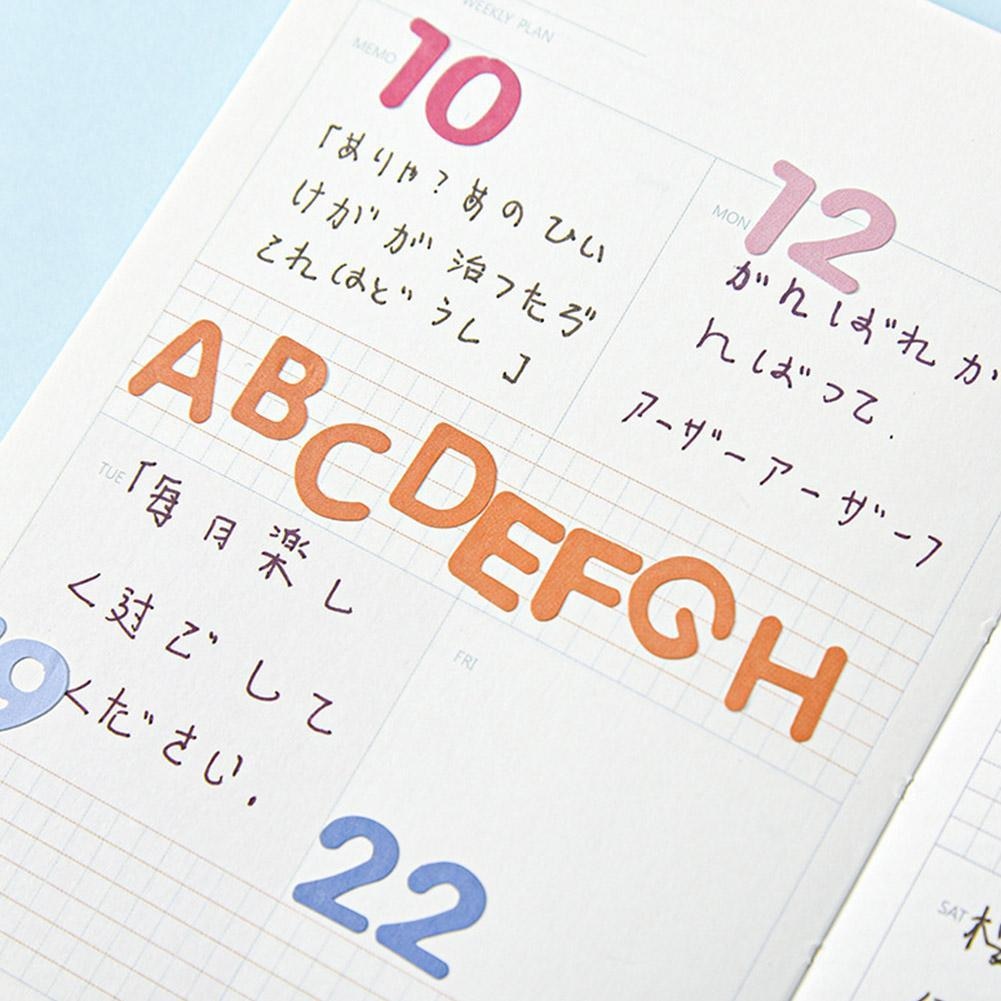 WEEKLY PLAN
MEMO
10
「ありゃ?あのひい
けがが治ったぞ
これはどうし
」
MON
12
がんばれ が
んばって.
アーザーアーザーフ
ABCDEFGH
TUE
「毎月楽し
く過ごして
ください.
19
FRI
22
SAT